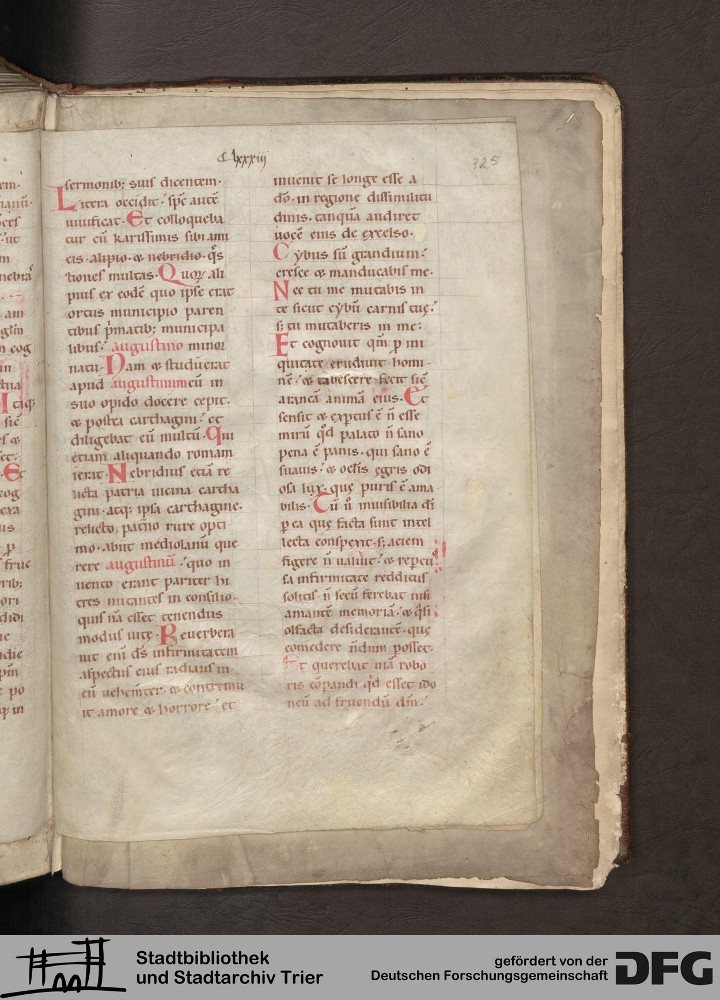 C lxxxiii
325
sermonib; suis dicentem.
Littera occidit. sp̄c autē
uiuificat. Et colloqueba
tur cū karissimis sibi ami
cis. alipio. & nebridio. q̄s
tiones multas. Quorꝝ ali
pius ex eodē quo ipse erat
ortus municipio paren
tibus p̄matib; municipa
libus. augustino minor
natu. Nam & studuerat
apud augustinum cū in
suo opido docere cepit.
& postea carthagini. et
diligebat eū multū. Qui
etiam aliquando romam
ierat. Nebridius etiā re
licta patria uicina cartha
gini. atq; ipsa carthagine.
relicto patrio rure opti
mo. abiit mediolanū que
rere augustinū. quo in
uento erant pariter hi
tres nutantes in consilio.
quis nā esset tenendus
modus uitę. Reuerbera
uit enī ds̄ infirmitatem
aspectus eius radians in
eū uehemter. & contremu
it amore & horrore. et
inuenit se longe esse a
dō. in regione dissimilitu
dinis. tanquā audiret
uocē eius de excelso.
Cybus sū grandium.
cresce & manducabis me.
Nec tu me mutabis in
te sicut cybū carnis tuę.
s; tu mutaberis in me.
Et cognouit qm̄ p ini
quitate erudiuit homi
nē. & tabescere fecit sic̄
araneā animā eius. Et
sensit & exptus ē n̄ esse
mirū qd̄ palato n̄ sano
pena ē panis. qui sano ē
suauis. & oclis ęgris odi
osa lux. quę puris ē ama
bilis. Cū u̅ inuisibilia dī
p ea quę facta sunt intel
lecta conspexit. s; aciem
figere n̄ ualuit. & repcus
sa infirmitate redditus
solitis. n̄ secū ferebat nisi
amantē memoriā. & q̄si
olfacta desiderantē. quę
comedere n̄dum posset.
Et querebat uiā robo
ris cōpandi qd̄ esset ido
neū ad fruendū dm̄.
Stadtbibliothek
und Stadtarchiv Trier
gefördert von der
Deutschen Forschungsgemeinschaft
DFG